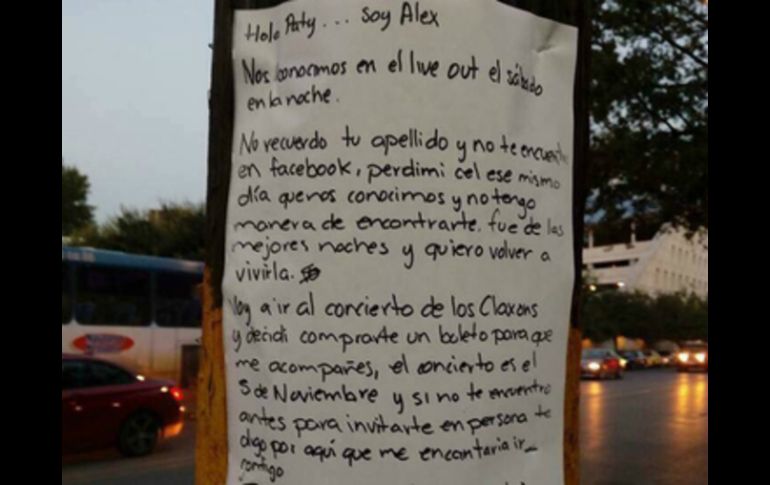 Hola Paty... Soy Alex
Nos conocimos en el live out el sábado
en la noche.
No recuerdo tu apellido y no te encuentro
en facebook, perdi mi cel ese mismo
día que nos conocimos y no tengo
manera de encontrarte. fue de las
mejores noches y quiero volver a
vivirla.
Voy a ir al concierto de los Claxons
y decidi comprarte un boleto para que
me acompañes, el concierto es el
5 de Noviembre y si no te encuentro
antes para invitarte en persona te
digo por aquí que me encantaria ir
contigo